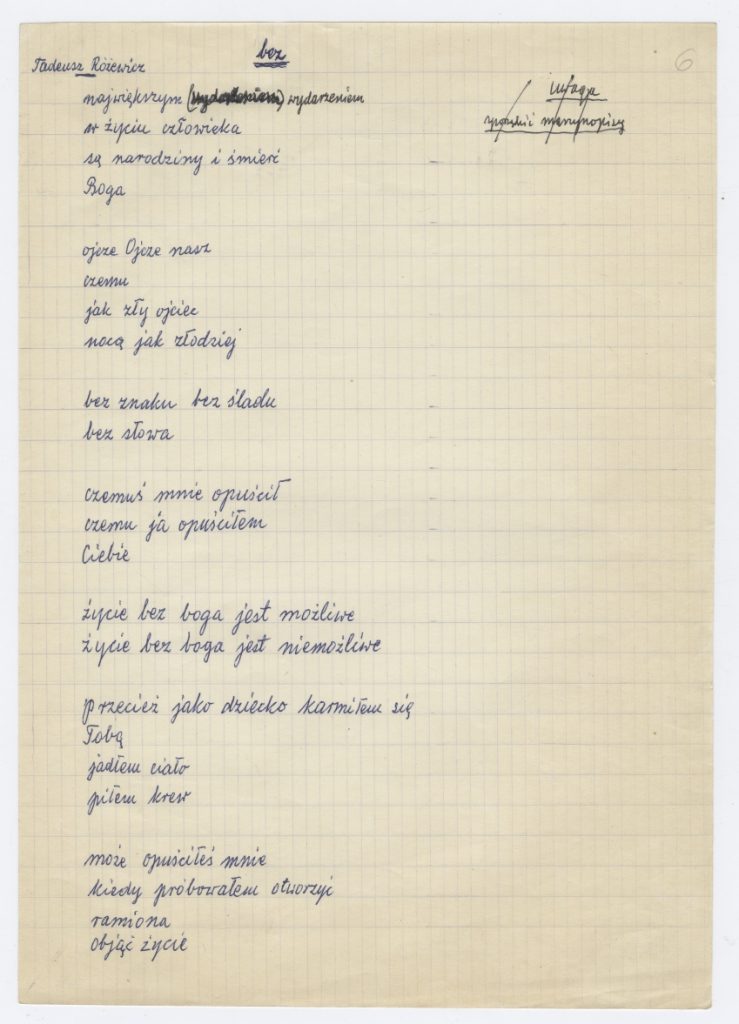 6
bez
Tadeusz Różewicz
uwaga
największym (wydarzeniem) wydarzeniem
w życiu człowieka
są narodziny i śmierć
Boga
ojcze Ojcze nasz
czemu
jak zły ojciec
nocą jak złodziej
bez znaku bez śladu
bez słowa
czemuś mnie opuścił
czemu ja opuściłem
Ciebie
życie bez boga jest możliwe
życie bez boga jest niemożliwe
przecież jako dziecko karmiłem się
Tobą
jadłem ciało
piłem krew
może opuściłeś mnie
kiedy próbowałem otworzyć
ramiona
objąć życie